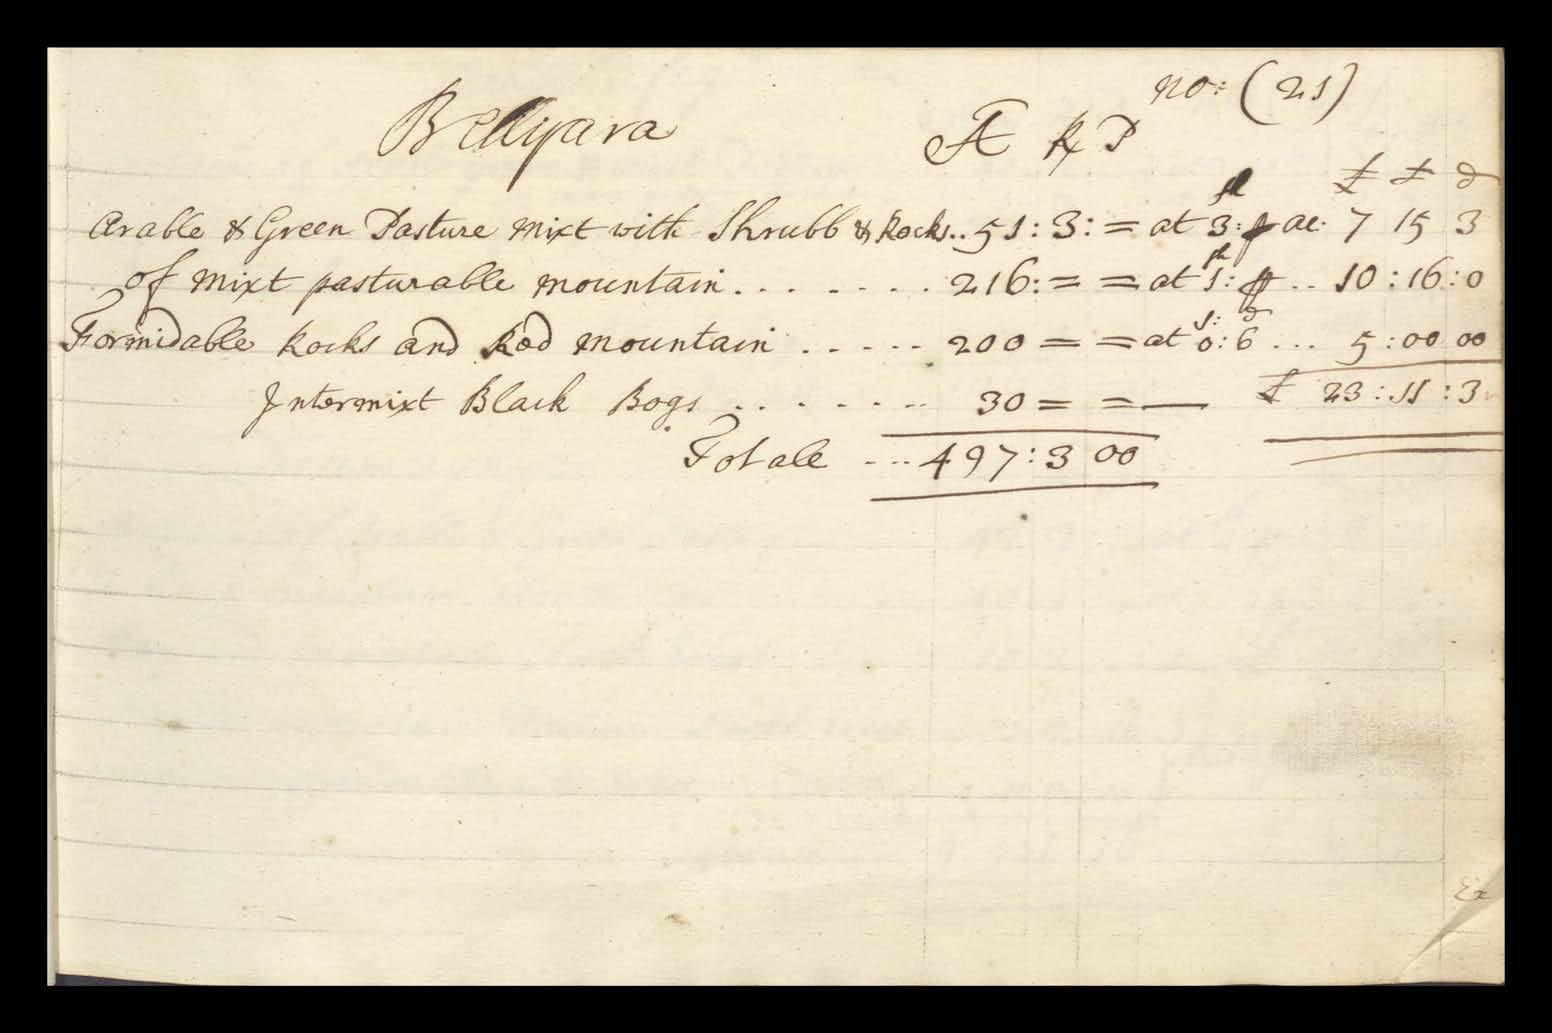 no: (21)
Bellyara A R P
£ s d
Arable & Green Pasture mixt with Shrubb & Rocks.. 51: 3: = at 3: p ac. 7 15 3
of mixt pasturable mountain . . . . . . . 216: = = at 1: p .. 10 : 16 : 0
Formidable Rocks and Rod mountain . . . . . 200 = = at 0: 6 ... 5 : 00 00
Intermixt Black Bogs . . . . . . . 30 = = — £ 23 : 11 : 3
Totale ... 497 : 3 00